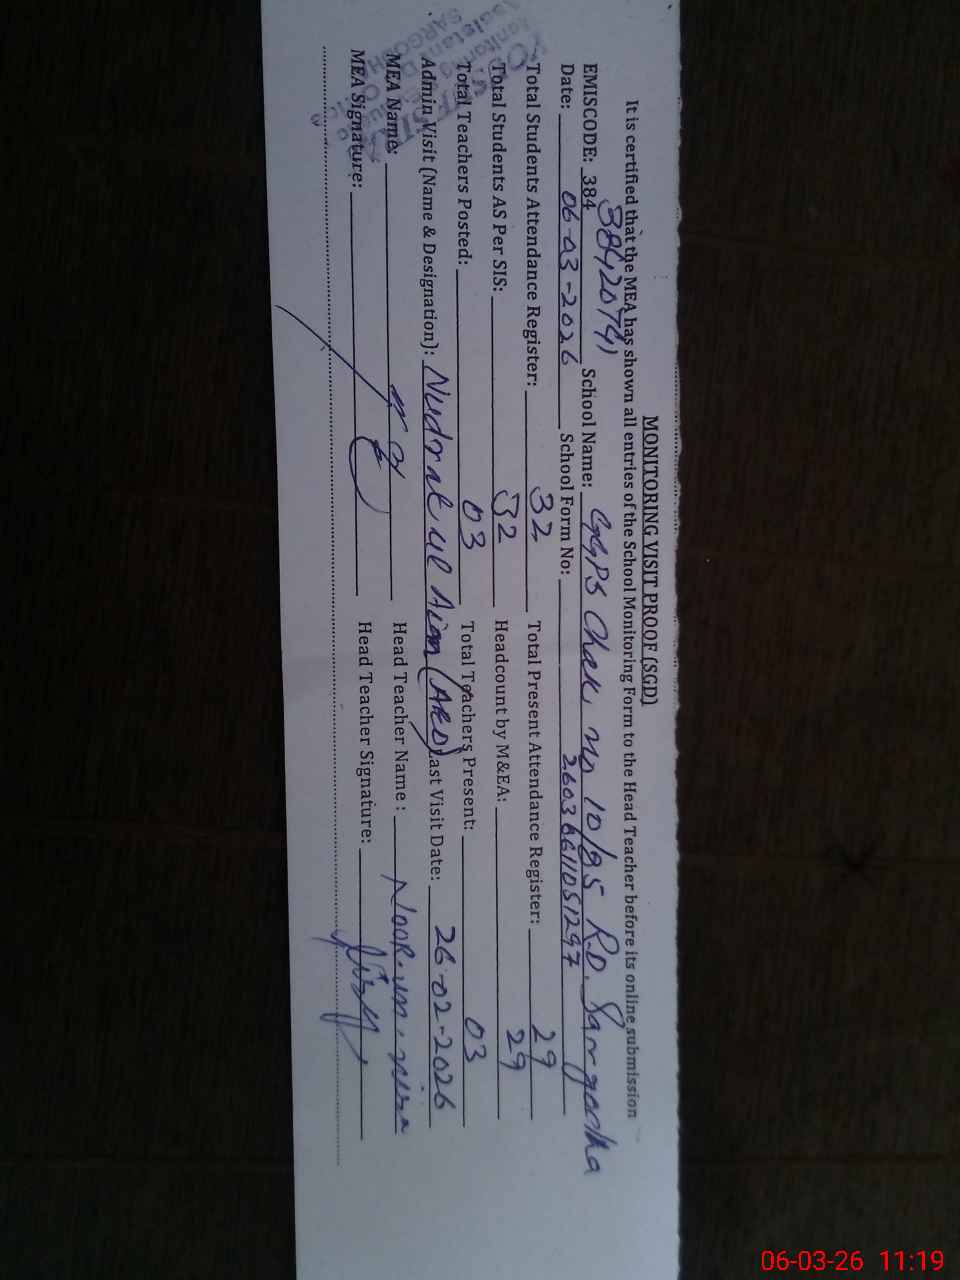 MONITORING VISIT PROOF (SGD)
It is certified that the MEA has shown all entries of the School Monitoring Form to the Head Teacher before its online submission
38420741
EMISCODE: 384 School Name: GGPS Chak no 10/85 R.D. Sargodha
Date: 06-03-2026 School Form No: 26036611051297
Total Students Attendance Register: 32 Total Present Attendance Register: 29
Total Students AS Per SIS: 32 Headcount by M&EA: 29
Total Teachers Posted: 03 Total Teachers Present: 03
Admin Visit (Name & Designation): Nudrat ul Aion (AEO) Last Visit Date: 26-02-2026
MEA Name: Head Teacher Name : Noor-un-nisa
MEA Signature: Head Teacher Signature:
06-03-26 11:19